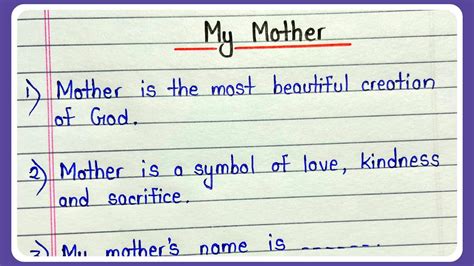 My Mother
1) Mother is the most beautiful creation
of God.
2) Mother is a symbol of love, kindness
and sacrifice.
3) My mother's name is _______.